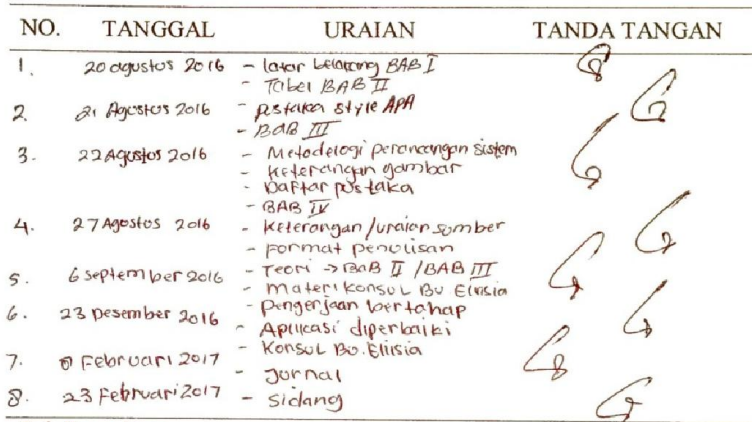 NO. TANGGAL URAIAN TANDA TANGAN
1. 20 agustus 2016 - latar belakang BAB I
- Tabel BAB II
2. 21 Agustus 2016 - pustaka style APA
- BAB III
3. 22 Agustus 2016 - Metodelogi perancangan sistem
- Keterangan gambar
- Daftar pustaka
- BAB IV
4. 27 Agustus 2016 - Keterangan/uraian sumber
- Format penulisan
5. 6 September 2016 - Teori → BAB II / BAB III
- Materi Konsul Bu Elisia
6. 23 Desember 2016 - pengerjaan bertahap
- Aplikasi diperbaiki
- Konsul Bu. Elisia
7. Februari 2017 - Jurnal
8. 23 Februari 2017 - Sidang